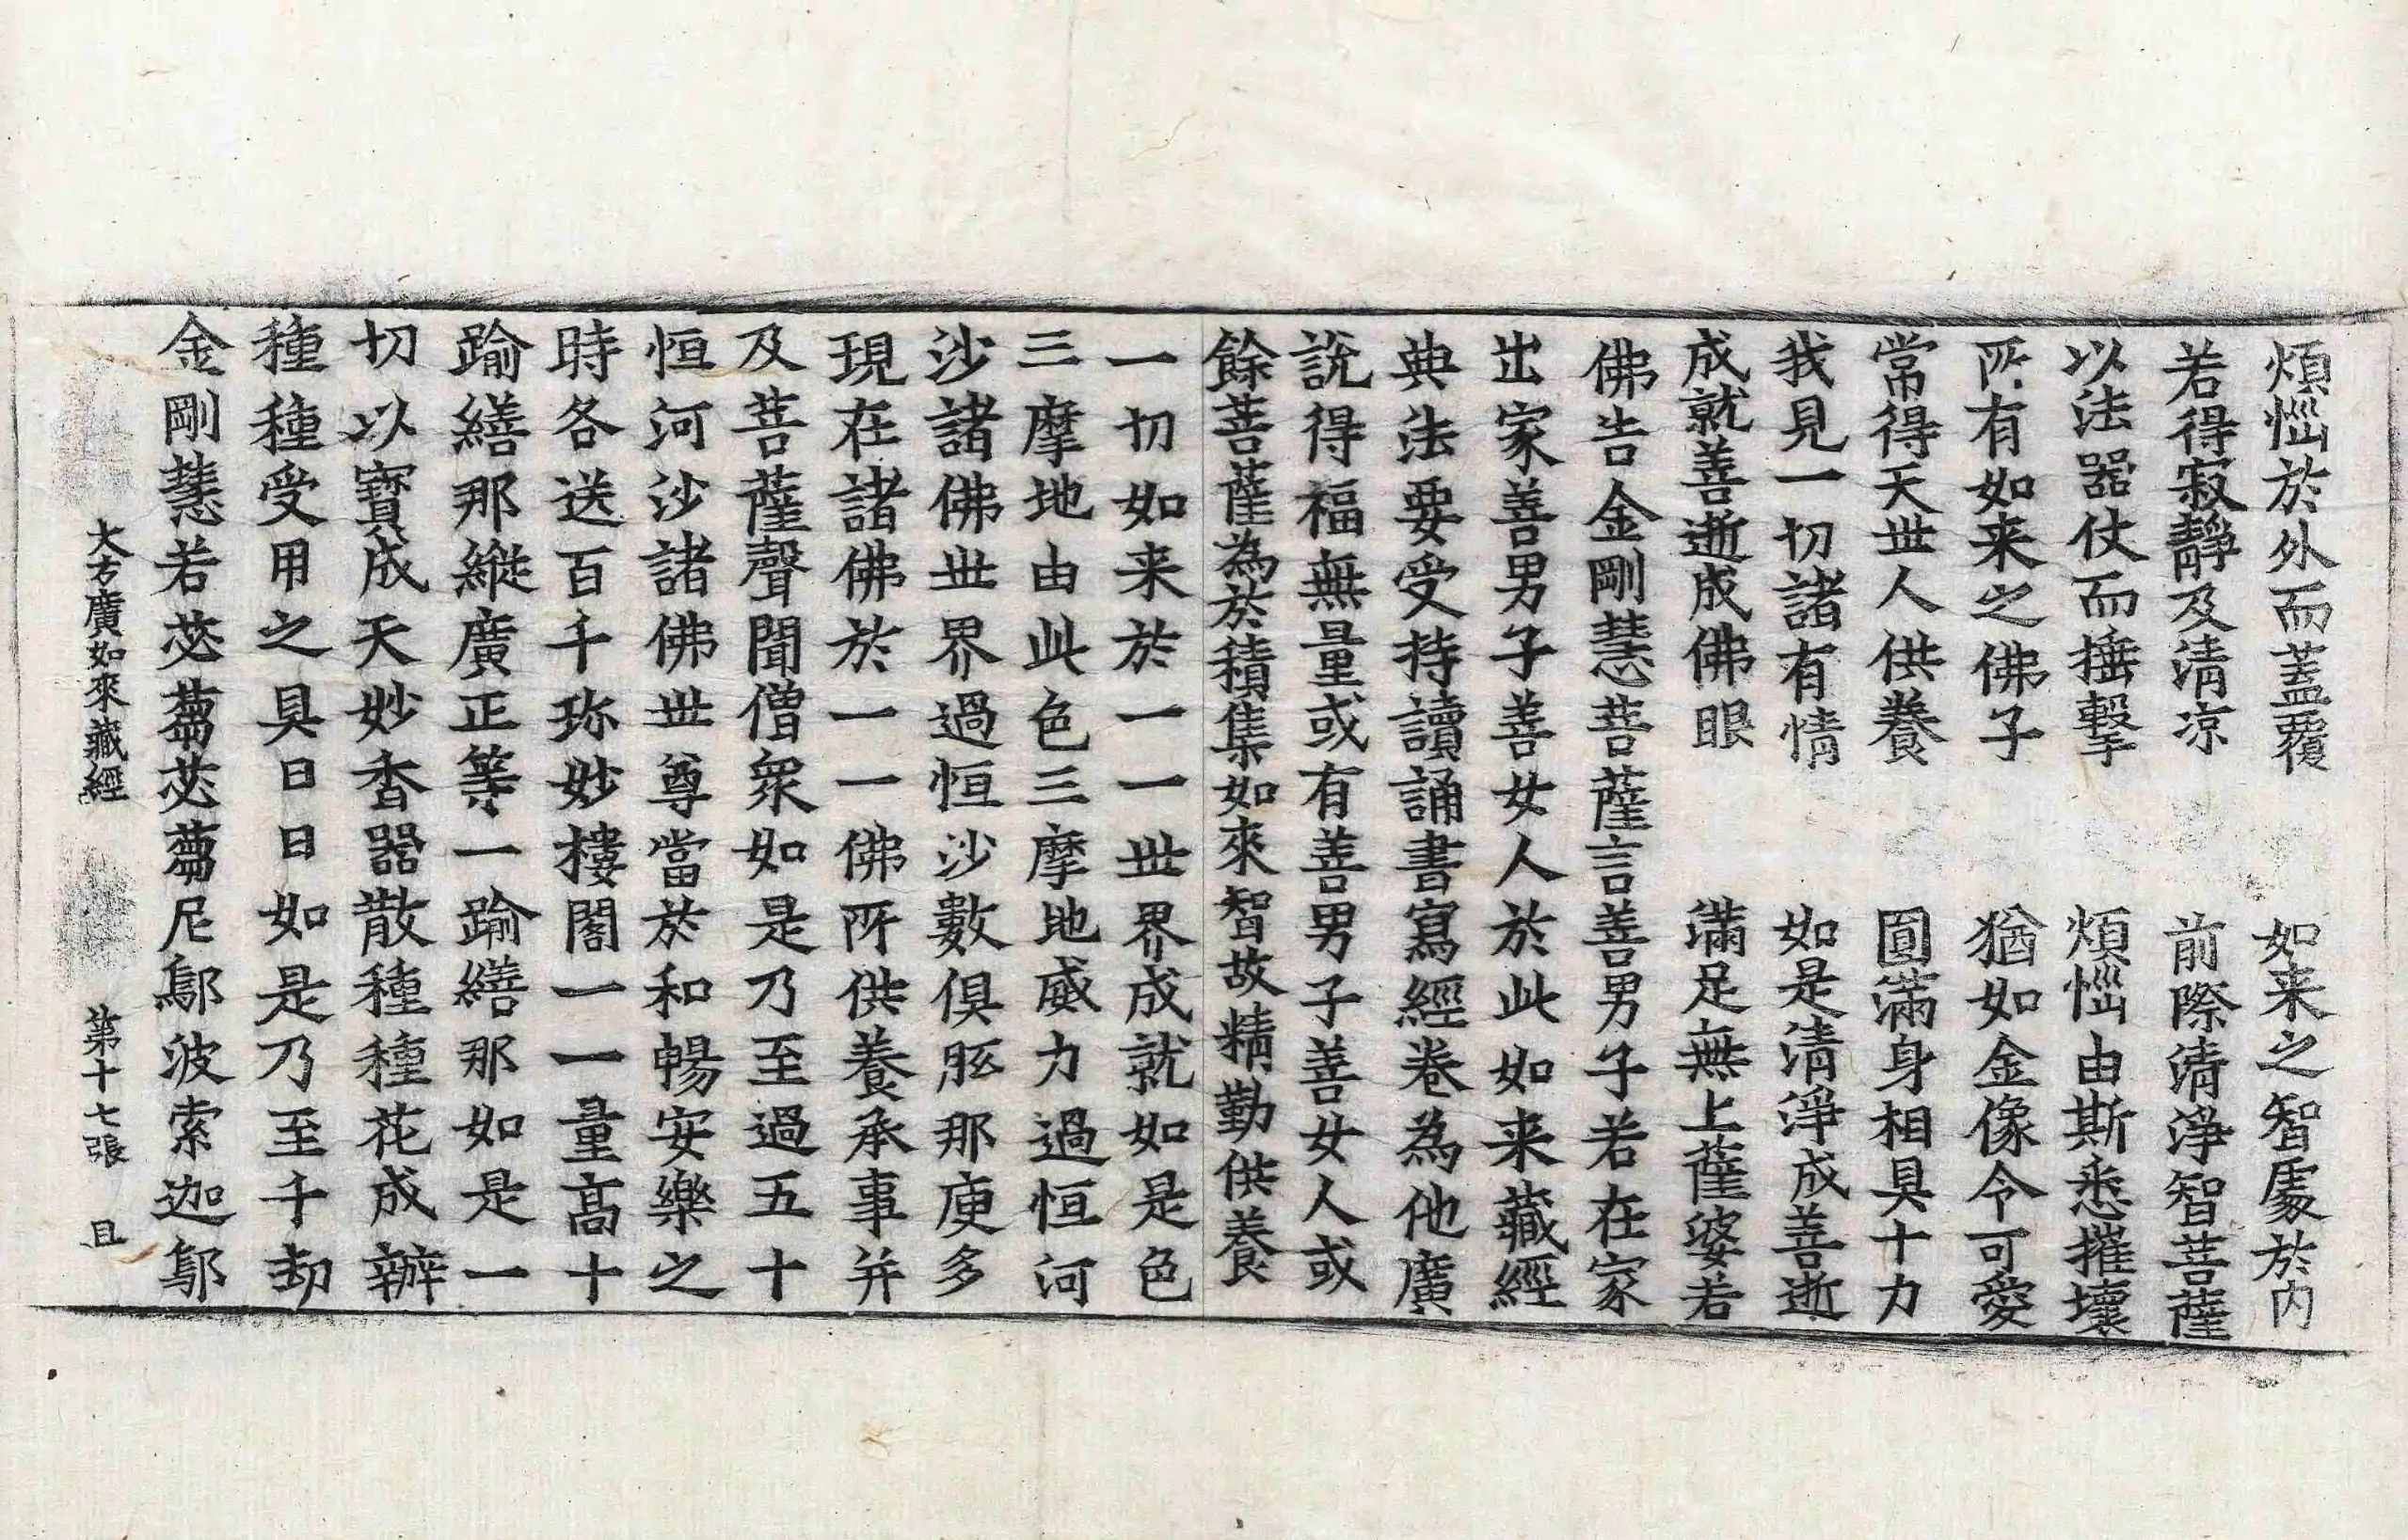 煩惱於外而蓋覆　如来之智處於内
若得寂靜及清凉　前際清淨智菩薩
以法器仗而捶擊　煩惱由斯悉摧壞
所有如来之佛子　猶如金像令可愛
常得天世人供養　圓滿身相具十力
我見一切諸有情　如是清淨成善逝
成就善逝成佛眼　滿足無上薩婆若
佛告金剛慧菩薩言善男子若在家
出家善男子善女人於此如来藏經
典法要受持讀誦書寫經卷為他廣
說得福無量或有善男子善女人或
餘菩薩為於積集如來智故精勤供養
一切如来於一一世界成就如是色
三摩地由此色三摩地威力過恒河
沙諸佛世界過恒沙數俱胝那庾多
現在諸佛於一一佛所供養承事并
及菩薩聲聞僧衆如是乃至過五十
恒河沙諸佛世尊當於和暢安樂之
時各送百千珎妙樓閣一一量高十
踰繕那縱廣正等一踰繕那如是一
切以寶成天妙香器散種種花成辦
種種受用之具日日如是乃至千劫
金剛慧若苾蒭苾蒭尼鄔波索迦鄔
大方廣如來藏經　第十七張　且